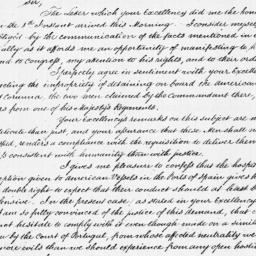 Sir,
The Letter which your Excellency did me the hono
the 1st Instant arrived this Morning. I consider myse
obliged by the communication of the facts mentioned in
ally as it affords me an opportunity of manifesting to
and to Congress, my attention to his rights, and to their orde
I perfectly agree in sentiment with your Excell
ecting the impropriety of detaining on board the american
at Corunna, the two men claimed by the Commandant there,
rs from one of his Majesty's Regiments.
Your Excellency's remarks on this subject are n
delicate than just, and your assurance that these Men shall n
ed, renders a compliance with the requisition to deliver them
s consistent with humanity than with justice.
It gives me pleasure to confess that the hosp
eption given to american Vessels in the Ports of Spain gives
a double right to expect that their conduct should at least b
fensive. In the present case, as stated in your Excellency's
I am so fully convinced of the justice of this demand, that
not hesitate to comply with it even though made on a simil
on by the Court of Portugal, from whose affected neutrality we
more evils than we should experience from any open hosti